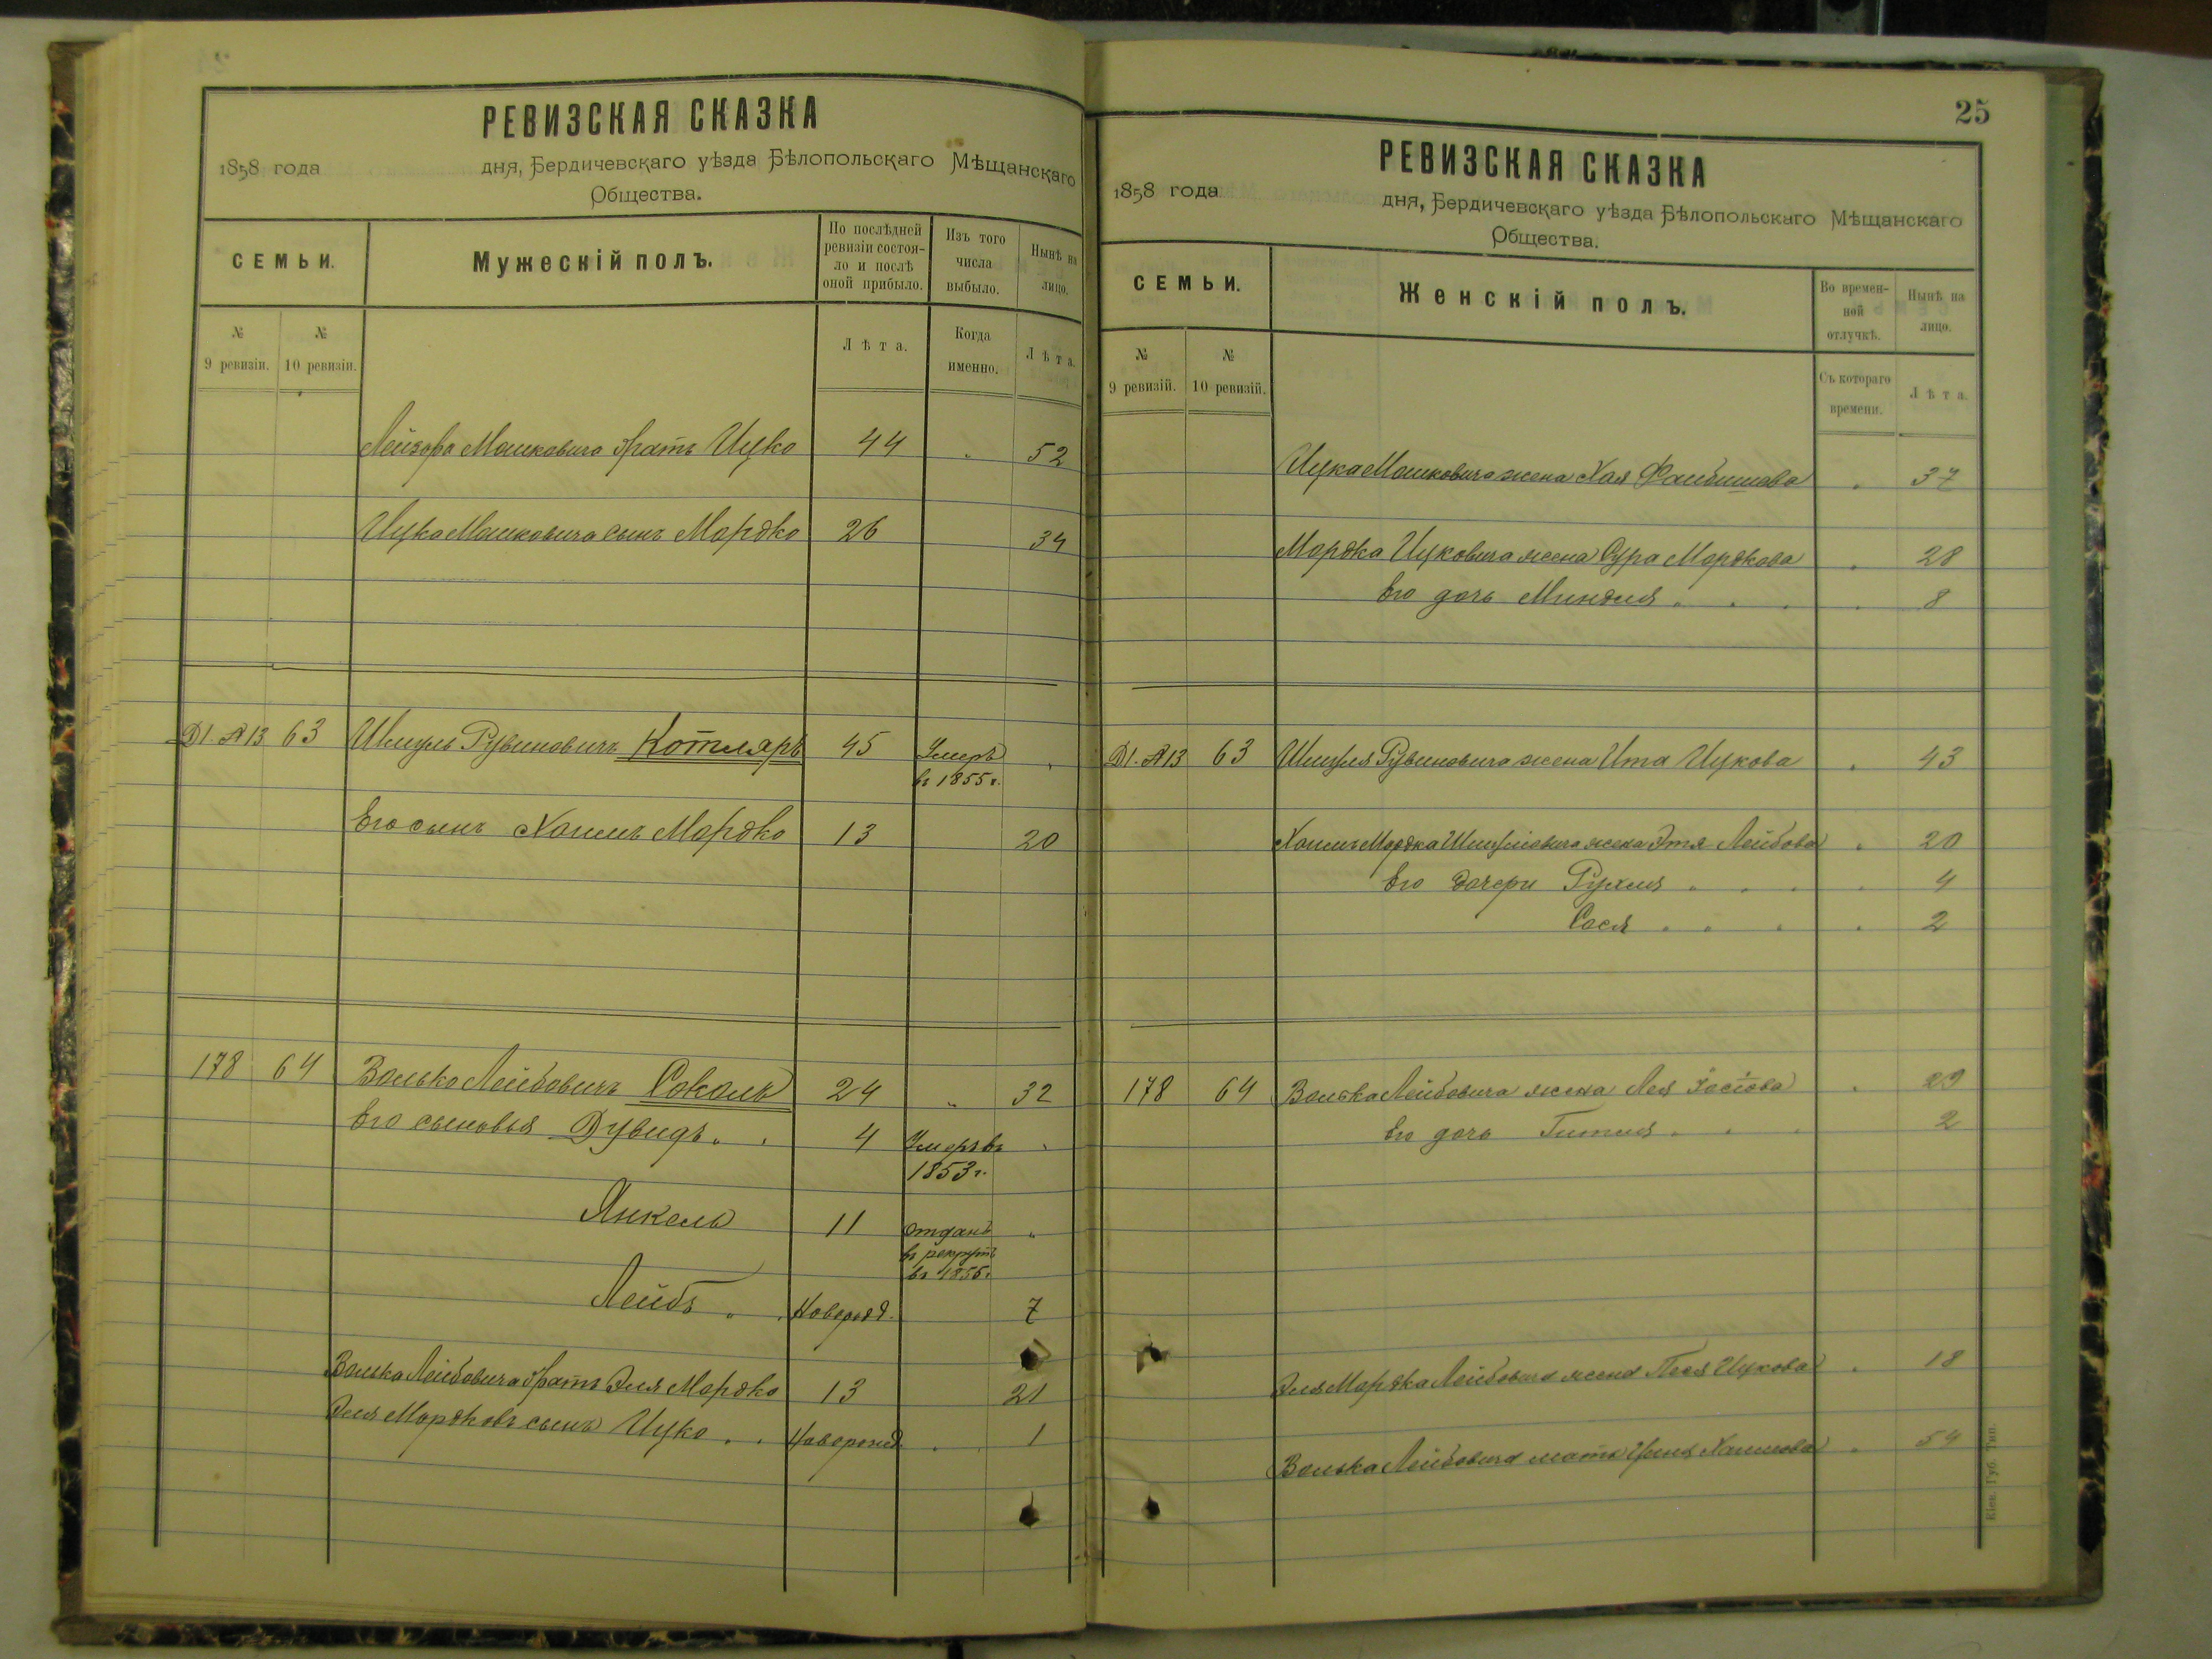 РЕВИЗСКАЯ СКАЗКА
1858 года дня, Бердичевскаго уѣзда Бѣлопольскаго Мѣщанскаго
Общества.
СЕМЬИ.
Мужескій полъ.
По послѣдней
ревизіи состоя-
ло и послѣ
оной прибыло.
Изъ того
числа
выбыло.
Нынѣ на
лицо.
№
9 ревизіи.
№
10 ревизіи.
Лѣта.
Когда
именно.
Лѣта.
Лейзора Мошковича братъ Ицко 44 " 52
Ицка Мошковича сынъ Мордко 26 34
Д1. №13 63 Шмуль Рувиновичъ Котляръ 45 Умеръ "
въ 1855 г.
Его сынъ Хаимъ Мордко 13 20
178 64 Волько Лейбовичъ Соколъ 24 " 32
Его сыновья Дувидъ " " 4 Умеръ въ "
1853 г.
Янкель 11 отданъ "
въ рекруты
въ 1855 г.
Лейбъ " " Новорожд. 7
Волька Лейбовича братъ Эля Мордко 13 21
Эля Мордковъ сынъ Ицко " " Новорожд. " 1
25
РЕВИЗСКАЯ СКАЗКА
1858 года дня, Бердичевскаго уѣзда Бѣлопольскаго Мѣщанскаго
Общества.
СЕМЬИ.
Женскій полъ.
Во времен-
ной
отлучкѣ.
Нынѣ на
лицо.
№
9 ревизій.
№
10 ревизій.
Съ котораго
времени.
Лѣта.
Ицка Мошковича жена Хая Фаибишова " 37
Мордка Ицковича жена Сура Мордкова " 28
Его дочь Миндля " " " " 8
Д1. №13 63 Шмуля Рувиновича жена Ита Ицкова " 43
Хаимъ Мордка Шмулiовича жена Этя Лейбова " 20
Его дочери Рухля " " " " 4
Сося " " " " 2
178 64 Волька Лейбовича жена Лея Iосiова " 29
Его дочь Гитля " " " 2
Эля Мордка Лейбовича жена Песя Ицкова " 18
Волька Лейбовича мать Хаимова " 54
Кіев. Губ. Тип.